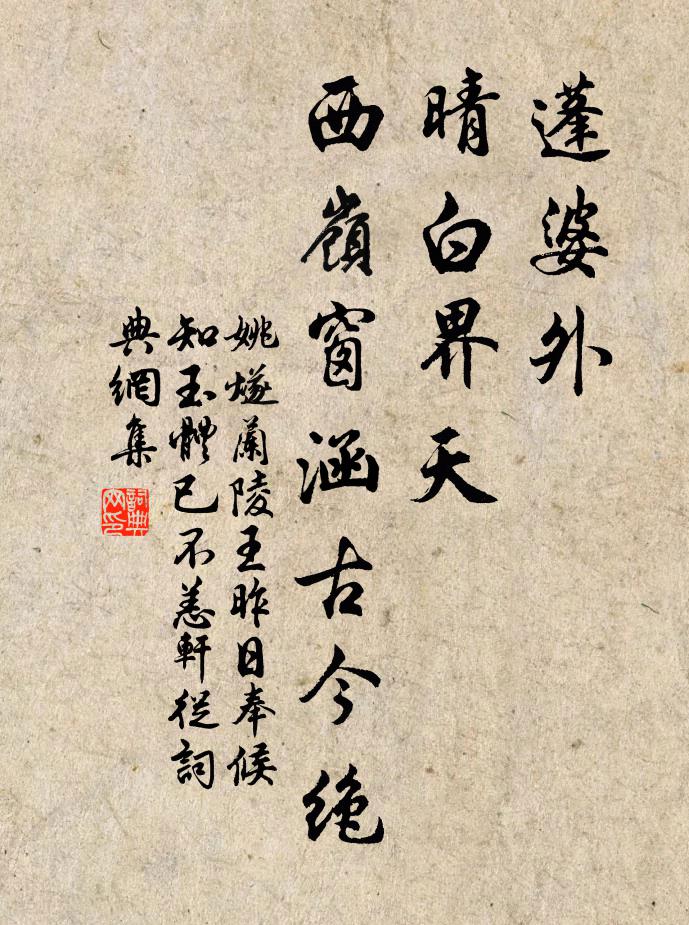 蓬婆外
晴白界天
西嶺窗涵古今絶
姚燧蘭陵王昨日奉候
知玉體已不恙軒從詞
典網集
詞典网印